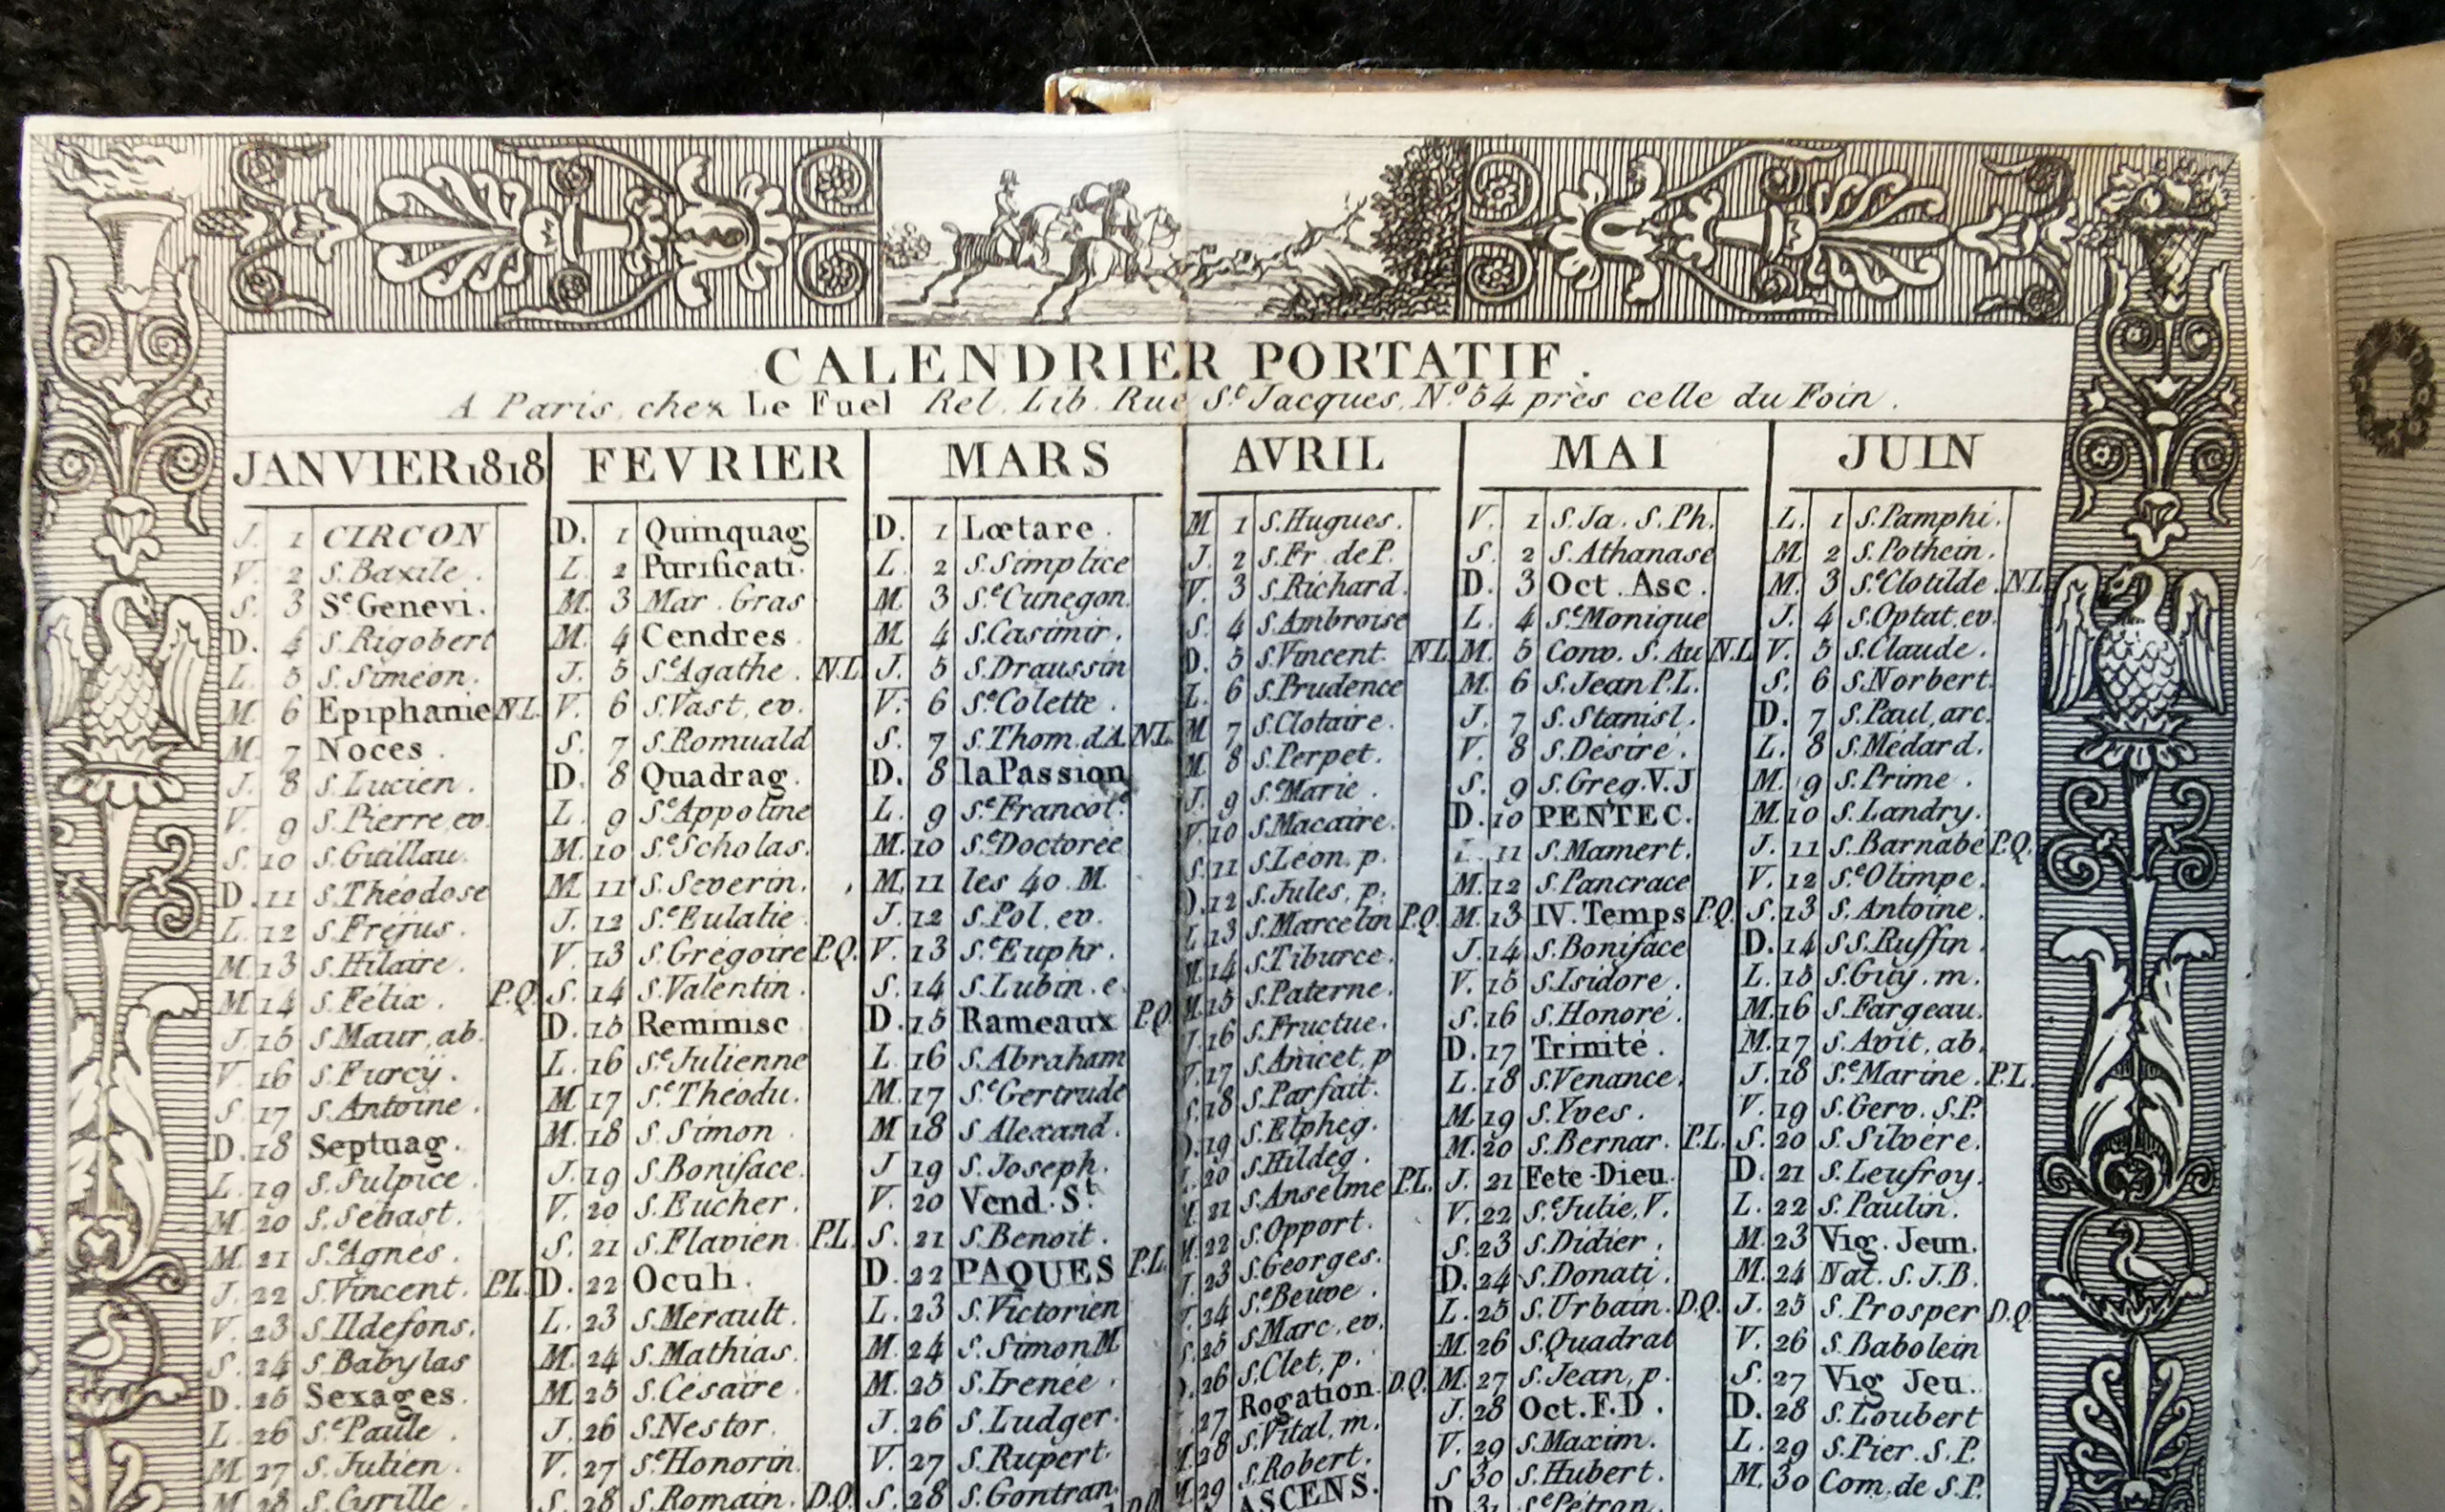 CALENDRIER PORTATIF.
A Paris, chez Le Fuel Rel. Lib. Rue St Jacques, No 54 près celle du Foin.
JANVIER 1818
J. 1 CIRCON
V. 2 S. Baxile.
S. 3 Se Genevi.
D. 4 S. Rigobert
L. 5 S. Siméon.
M. 6 Epiphanie N.L.
M. 7 Noces.
J. 8 S. Lucien.
V. 9 S. Pierre, ev.
S. 10 S. Guillau.
D. 11 S. Théodose
L. 12 S. Fréjus.
M. 13 S. Hilaire.
M 14 S. Félix. P.Q.
J. 15 S. Maur, ab.
V. 16 S. Furcÿ.
S. 17 S. Antoine.
D. 18 Septuag.
L. 19 S. Sulpice.
M 20 S. Sebast.
M. 21 Se Agnès.
J. 22 S. Vincent. P.L.
V. 23 S. Ildefons.
S. 24 S. Babylas
D. 25 Sexages.
L. 26 Se Paule.
M. 27 S. Julien.
M 28 S. Cyrille.
FEVRIER
D. 1 Quinquag
L. 2 Purificati.
M. 3 Mar. Gras
M. 4 Cendres.
J. 5 Se Agathe. N.L.
V. 6 S. Vast, ev.
S. 7 S. Romuald
D. 8 Quadrag.
L. 9 Se Appoline
M. 10 Se Scholas.
M. 11 S. Severin.
J. 12 Se Eulalie.
V. 13 S. Grégoire P.Q.
S. 14 S. Valentin.
D. 15 Reminisc
L. 16 Se Julienne
M 17 Se Théodu.
M. 18 S. Simon.
J. 19 S. Boniface.
V. 20 S. Eucher.
S. 21 S. Flavien. P.L.
D. 22 Oculi.
L. 23 S. Merault.
M. 24 S. Mathias.
M. 25 S. Césaire.
J. 26 S. Nestor.
V. 27 Se Honorin.
S. 28 S. Romain. D.Q.
MARS
D. 1 Lœtare.
L. 2 S. Simplice
M. 3 Se Cunegon.
M. 4 S. Casimir.
J. 5 S. Draussin
V. 6 Se Colette.
S. 7 S. Thom. d'A. N.L.
D. 8 la Passion
L. 9 Se Francoie
M. 10 Se Doctorée
M. 11 les 40. M.
J. 12 S. Pol, ev.
V. 13 Se Euphr.
S. 14 S. Lubin. e.
D. 15 Rameaux P.Q.
L. 16 S. Abraham
M. 17 Se Gertrude
M 18 S. Alexand.
J 19 S. Joseph.
V. 20 Vend. St
S. 21 S. Benoit.
D. 22 PAQUES P.L.
L. 23 S. Victorien
M 24 S. Simon M
M. 25 S. Irenée.
J. 26 S. Ludger.
V. 27 S. Rupert.
S. 28 S. Gontran. D.Q.
AVRIL
M 1 S. Hugues.
J. 2 S. Fr. de P.
V. 3 S. Richard.
S. 4 S. Ambroise
D. 5 S. Vincent. N.L.
L. 6 S. Prudence
M 7 S. Clotaire.
M. 8 S. Perpet.
J. 9 Se Marie.
V. 10 S. Macaire.
S. 11 S. Léon. p.
D. 12 S. Jules, p.
L 13 S. Marcelin P.Q.
M. 14 S. Tiburce.
M. 15 S. Paterne.
J. 16 S. Fructue.
V. 17 S. Anicet, p
S. 18 S. Parfait.
D. 19 S. Elpheg.
L. 20 S. Hildeg.
M. 21 S. Anselme P.L.
M. 22 S. Opport.
J. 23 S. Georges.
V. 24 Se Beuve.
S. 25 S. Marc, ev.
D. 26 S. Clet, p.
27 Rogation. D.Q.
M. 28 S. Vital, m.
M. 29 S. Robert.
ASCENS.
MAI
V. 1 S. Ja. S. Ph.
S. 2 S. Athanase
D. 3 Oct. Asc.
L. 4 Se Monique
M. 5 Conv. S. Au N.L.
M. 6 S. Jean P. L.
J. 7 S. Stanisl.
V. 8 S. Desiré.
S. 9 S. Greg. V. J
D. 10 PENTEC.
L. 11 S. Mamert.
M. 12 S. Pancrace
M. 13 IV. Temps P.Q.
J. 14 S. Boniface
V. 15 S. Isidore.
S. 16 S. Honoré.
D. 17 Trinité.
L. 18 S. Venance.
M. 19 S. Yves.
M. 20 S. Bernar. P.L.
J. 21 Fete-Dieu
V. 22 Se Julie, V.
S. 23 S. Didier.
D. 24 S. Donati.
L. 25 S. Urbain. D.Q.
M. 26 S. Quadrat
M. 27 S. Jean, p.
J. 28 Oct. F. D.
V. 29 S. Maxim.
S 30 S. Hubert.
D. 31 Se Pétron.
JUIN
L. 1 S. Pamphi.
M. 2 S. Pothein.
M. 3 Se Clotilde. N.L.
J. 4 S. Optat, ev.
V. 5 S. Claude.
S. 6 S. Norbert.
D. 7 S. Paul, arc.
L. 8 S. Médard.
M. 9 S. Prime.
M. 10 S. Landry.
J. 11 S. Barnabé P.Q.
V. 12 Se Olimpe.
S. 13 S. Antoine.
D. 14 SS. Ruffin.
L. 15 S. Guy. m.
M. 16 S. Fargeau.
M. 17 S. Avit, ab.
J. 18 Se Marine. P.L.
V. 19 S. Gerv. S. P.
S. 20 S. Silvère.
D. 21 S. Leufroy.
L. 22 S. Paulin.
M. 23 Vig. Jeun.
M. 24 Nat. S. J. B.
J. 25 S. Prosper D.Q.
V. 26 S. Babolein
S. 27 Vig Jeu.
D. 28 S. Loubert
L. 29 S. Pier. S. P.
M. 30 Com. de S. P.